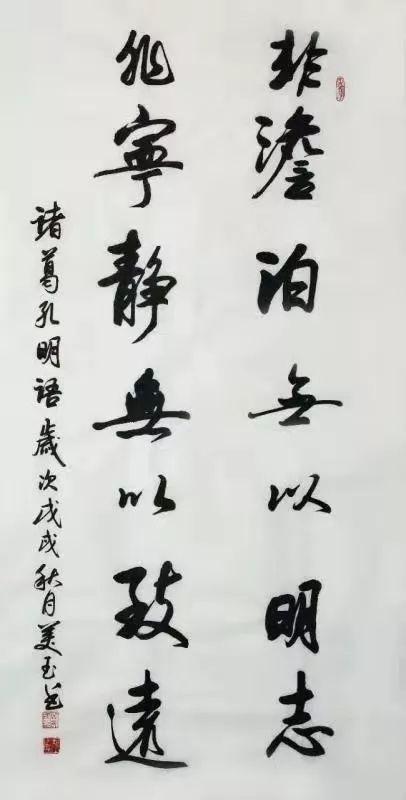 非澹泊無以明志
非寧靜無以致遠
諸葛孔明語歲次戊戌秋月美玉書